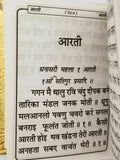 आरती
( १६५ )
आरती
आरती
धनासरी महला १ आरती
१ओं सतिगुर प्रसादि ॥
गगन मै थालु रवि चंदु दीपक बने
तारिका मंडल जनक मोती ॥ धूपु
मलआनलो पवणु चवरो करे सगल
बनराइ फूलंत जोती ॥ १ ॥ कैसी
आरती होइ भव खंडना तेरी आरती